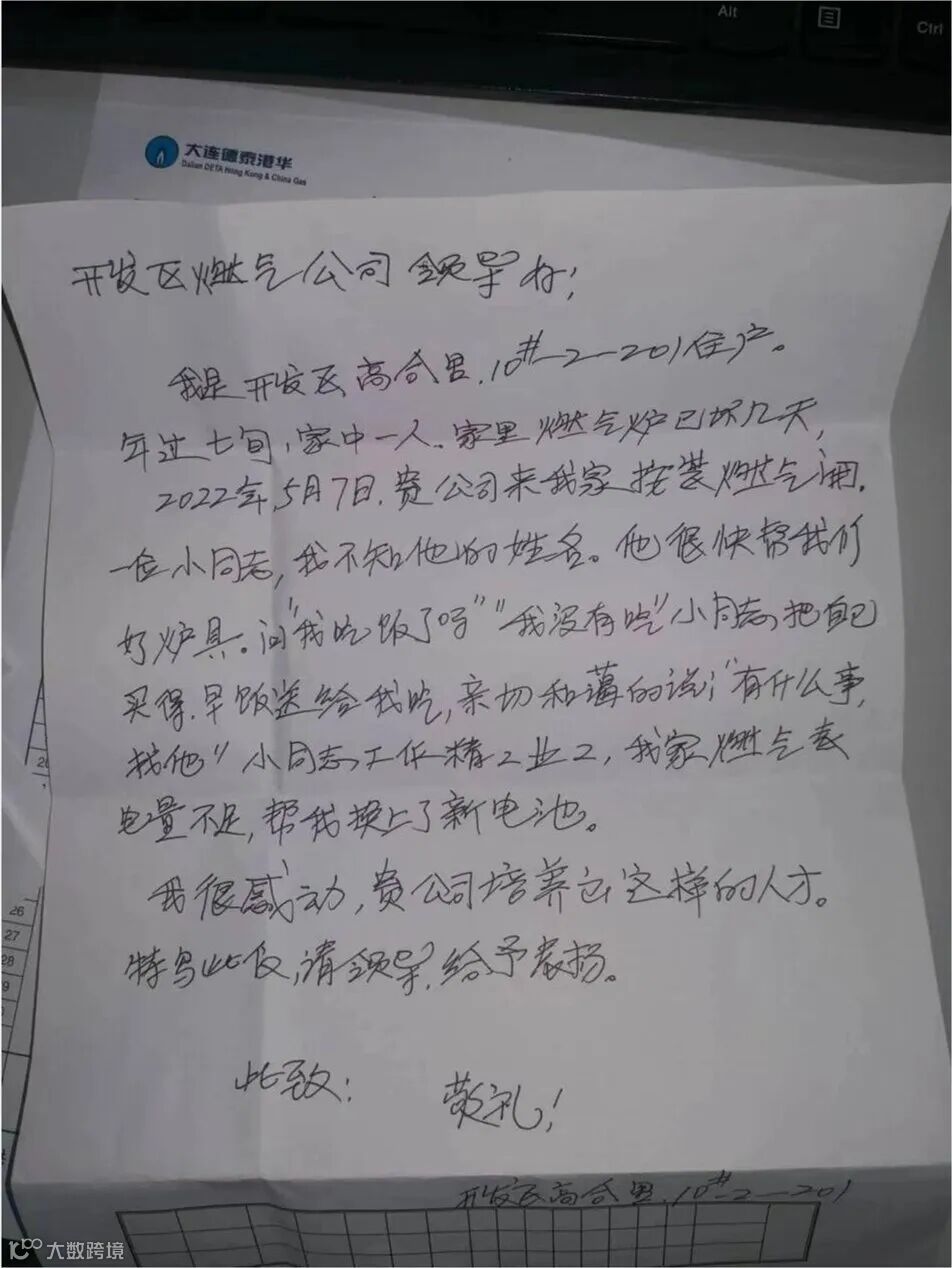 Alt
Ctrl
大连德泰港华
Dalian DETA Hong Kong & China Gas
开发区燃气公司领导好!
我是开发区高合里.10#-2-201住户。
年过七旬,家中一人.家里燃气炉已坏几天,
2022年5月7日.贵公司来我家按装燃气闸.
一位小同志,我不知他的姓名。他很快帮我们
好炉具。问"我吃饭了吗""我没有吃"小同志把自己
买得.早饭送给我吃,亲切和蔼的说;"有什么事,
找他"小同志工作精工业工,我家燃气表
电量不足,帮我换上了新电池。
我很感动,贵公司培养出这样的人才。
特写此仪,请领导.给予表扬。
此致:
敬礼!
开发区高合里.10#-2-201
26
27
28
大数跨境